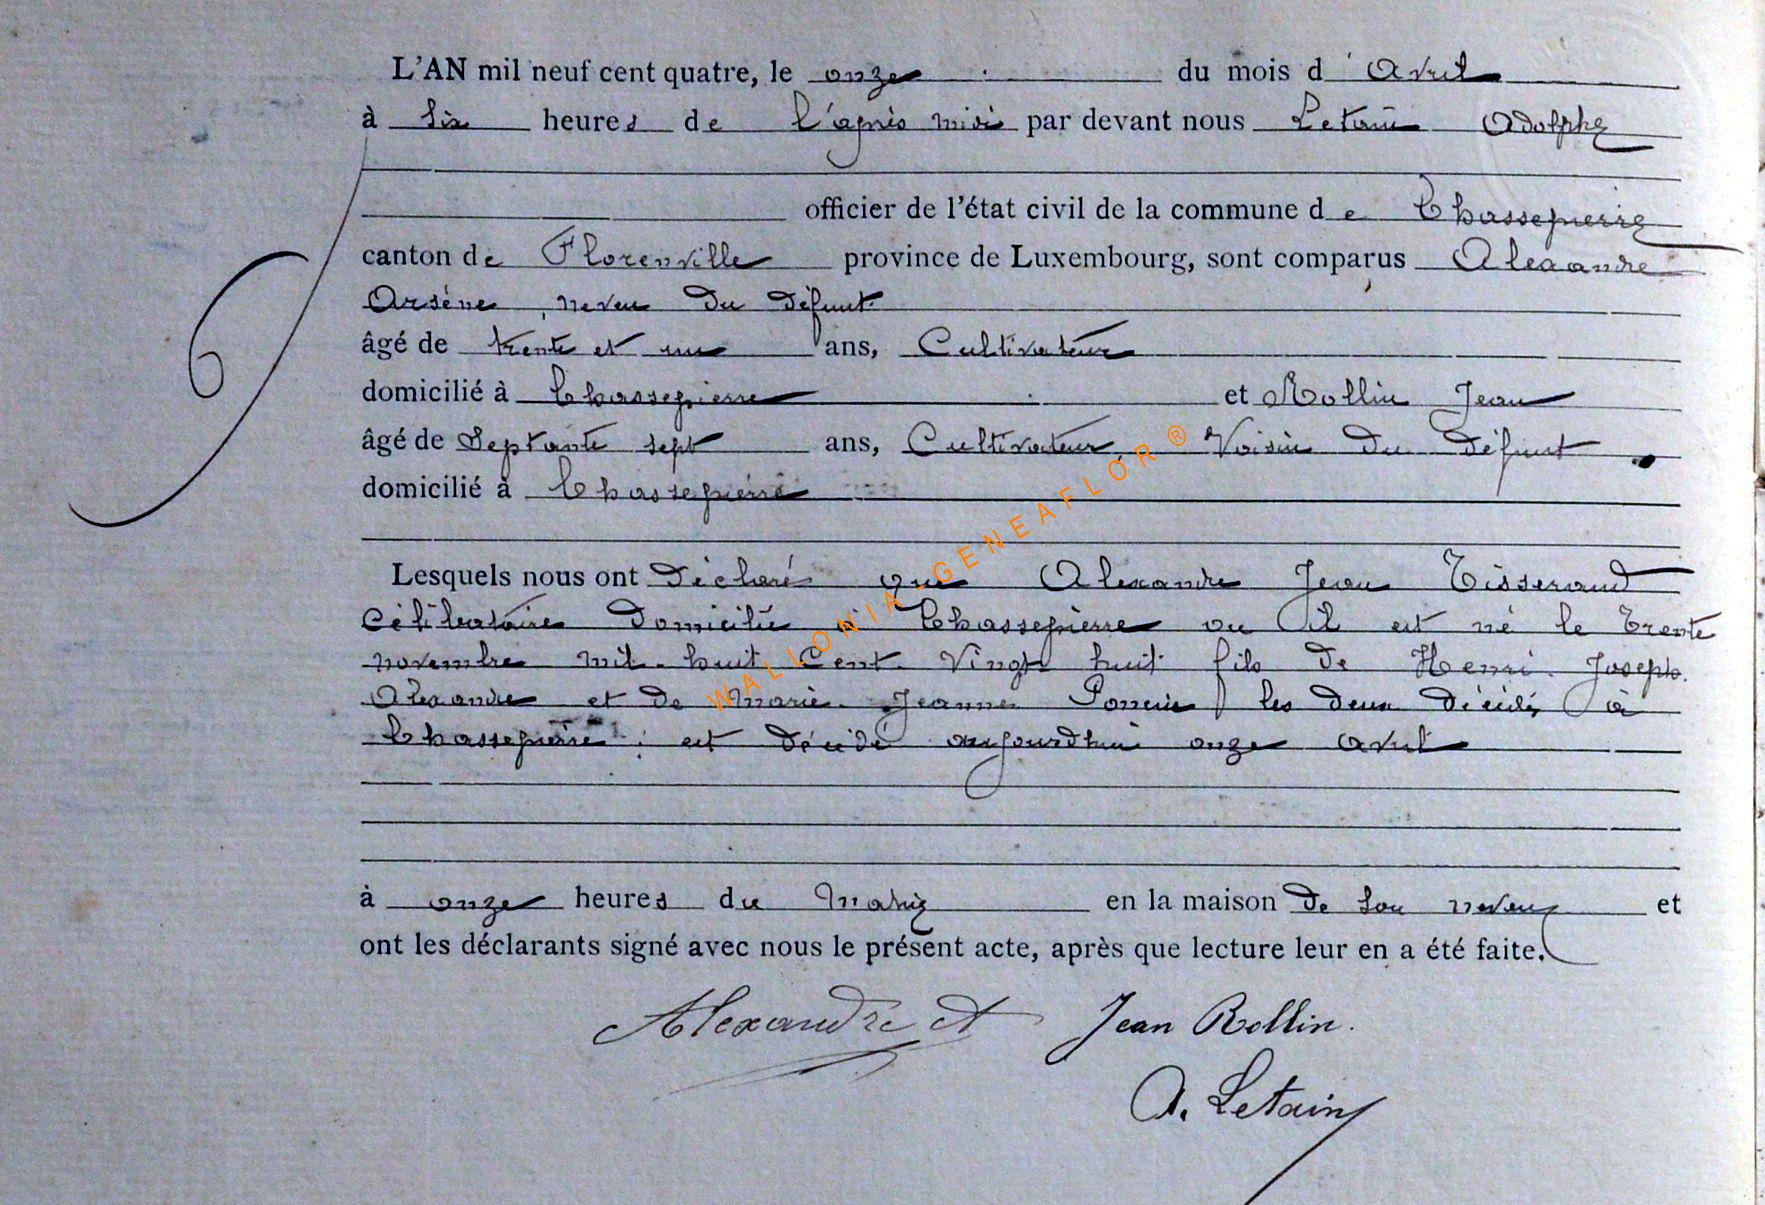 L'AN mil neuf cent quatre, le onze du mois d'Avril
à six heures de l'après midi par devant nous Letain Adolphe
officier de l'état civil de la commune de Chassepierre
canton de Florenville province de Luxembourg, sont comparus Alexandre
Arsène, neveu du défunt
âgé de trente et un ans, Cultivateur
domicilié à Chassepierre et Rollin Jean
âgé de Septante sept ans, Cultivateur, Voisin du défunt
domicilié à Chassepierre
Lesquels nous ont déclaré que Alexandre Jean Tisserand
Célibataire domicilié à Chassepierre ou il est né le trente
novembre mil-huit Cent Vingt huit fils de Henri Joseph
Alexandre et de Marie Jeanne les deux décédés à
Chassepierre ; est décédé aujourdhui onze avril
à onze heures du Matin en la maison de son neveu et
ont les déclarants signé avec nous le présent acte, après que lecture leur en a été faite.
Alexandre A Jean Rollin.
A. Letain
WALLONIA-GENEAFLOR®